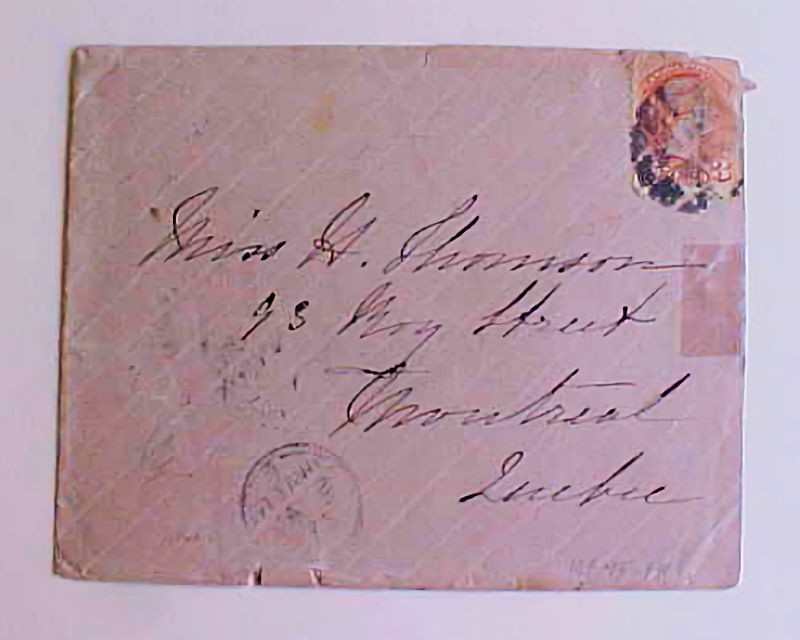 Miss H. Thomson
93 Roy Street
Montreal
Quebec